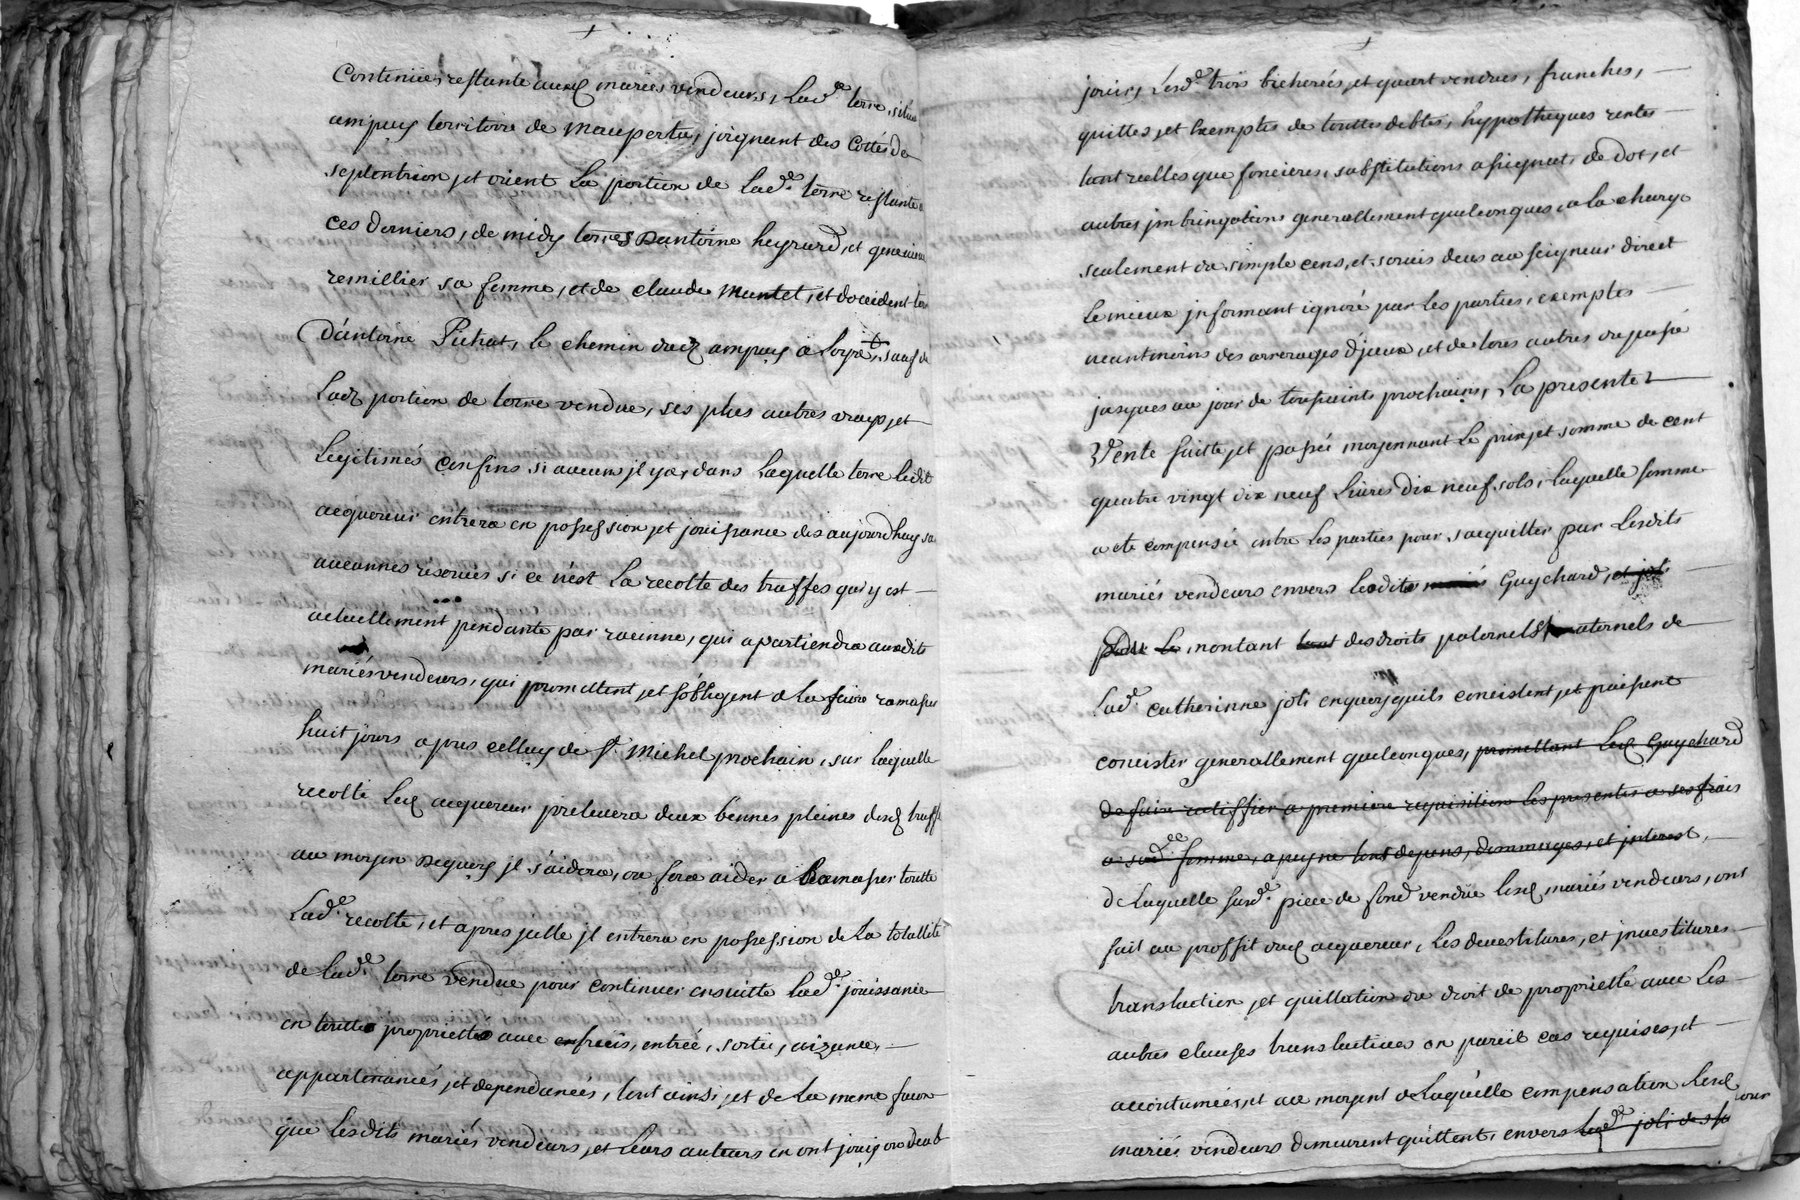 Contenüe, restante auxd mariés vendeurs, Lad.e terre, situé
ampuis territoire de Maupertu, joignant des Cottés de
septentrion, et orient La portion de Lad.e terre restante a
ces derniers, de midy terres Dantoine heyrard, et genevieve
remillier sa femme, et de claude Mantet, et doccident terre
D'antoine Pichat, le chemin dud ampuis à Loyre, sauf de
Lad portion de terre vendue, ses plus autres vrays, et
Legitimes Confins si aucuns jl ya, dans Laquelle terre ledit
acquereur entrera en possession, et jouissance dès aujourdhuy sa
aucunnes réserves si ce n'est La recolte des truffes qui y est
actuellement pendante par racinne, qui apartiendra auxdits
mariés vendeurs, qui promettent, et s'obligent de La faire ramasser
huit jours apres celluy de St. Michel prochain, sur laquelle
recolte Led acquereur prelevera deux bennes pleines desd truffes
au moyen Dequoy jl s'aidera, ou fera aider a Ramasser toutte
Lad.e recolte, et apres jcelle jl entrera en possession de La totallité
de Lad.e terre vendue pour continuer ensuitte Lad.e joüissance
en toutte propriette avec ses fruis, entrée, sortie, aizance,
appartenances, et dependances, tout ainsi, et de La meme facon
que lesdits mariés vendeurs, et Leurs auteurs en ont jouis ou deub
jouir, Lesd.e trois bicherées, et quart vendues, franches,
quittes, et Exemptes de touttes debtes, hypotheques rentes
tant reelles que foncieres, substitutions assignats de dot, et
autres jmbringations generallement quelconques, a la charge
seulement du simple cens, et servis deus au seigneur direct
Le mieux jnformant ignoré par les parties, exemptes
neantmoins des arrerages d'jceux, et de tous autres du passé
jusques au jour de toussaints prochains, La presente
Vente faitte, et passée moyennant Le prix, et somme de cent
quatre vingt dix neuf Livres dix neuf sols, Laquelle somme
a eté compensée entre Les parties pour s'acquitter par Lesdits
mariés vendeurs envers lesdits mariés Guychard, et joli
pour Le montant tout des droits paternels, et maternels de
Lad.e catherinne joli enquoy, quils concistent, et puissent
concister generallement quelconques, promettant Led Guychard
de faire ratiffier a premiere requisition Les presentes a ses frais
a sad.e femme, a peyne tous depens, dommages, et interest,
de Laquelle susd.e piece de fond vendüe Lesd mariés vendeurs, ont
fait au proffit dud acquereur, Les devestitures, et jnvestitures
translation, et quittation du droit de proprietté avec Les
autres clauses translatives en pareil cas requises, et
accoutumées, et au moyent de Laquelle compensation Lesd
mariés vendeurs demeurent quittent, envers Lad.e joli de sa